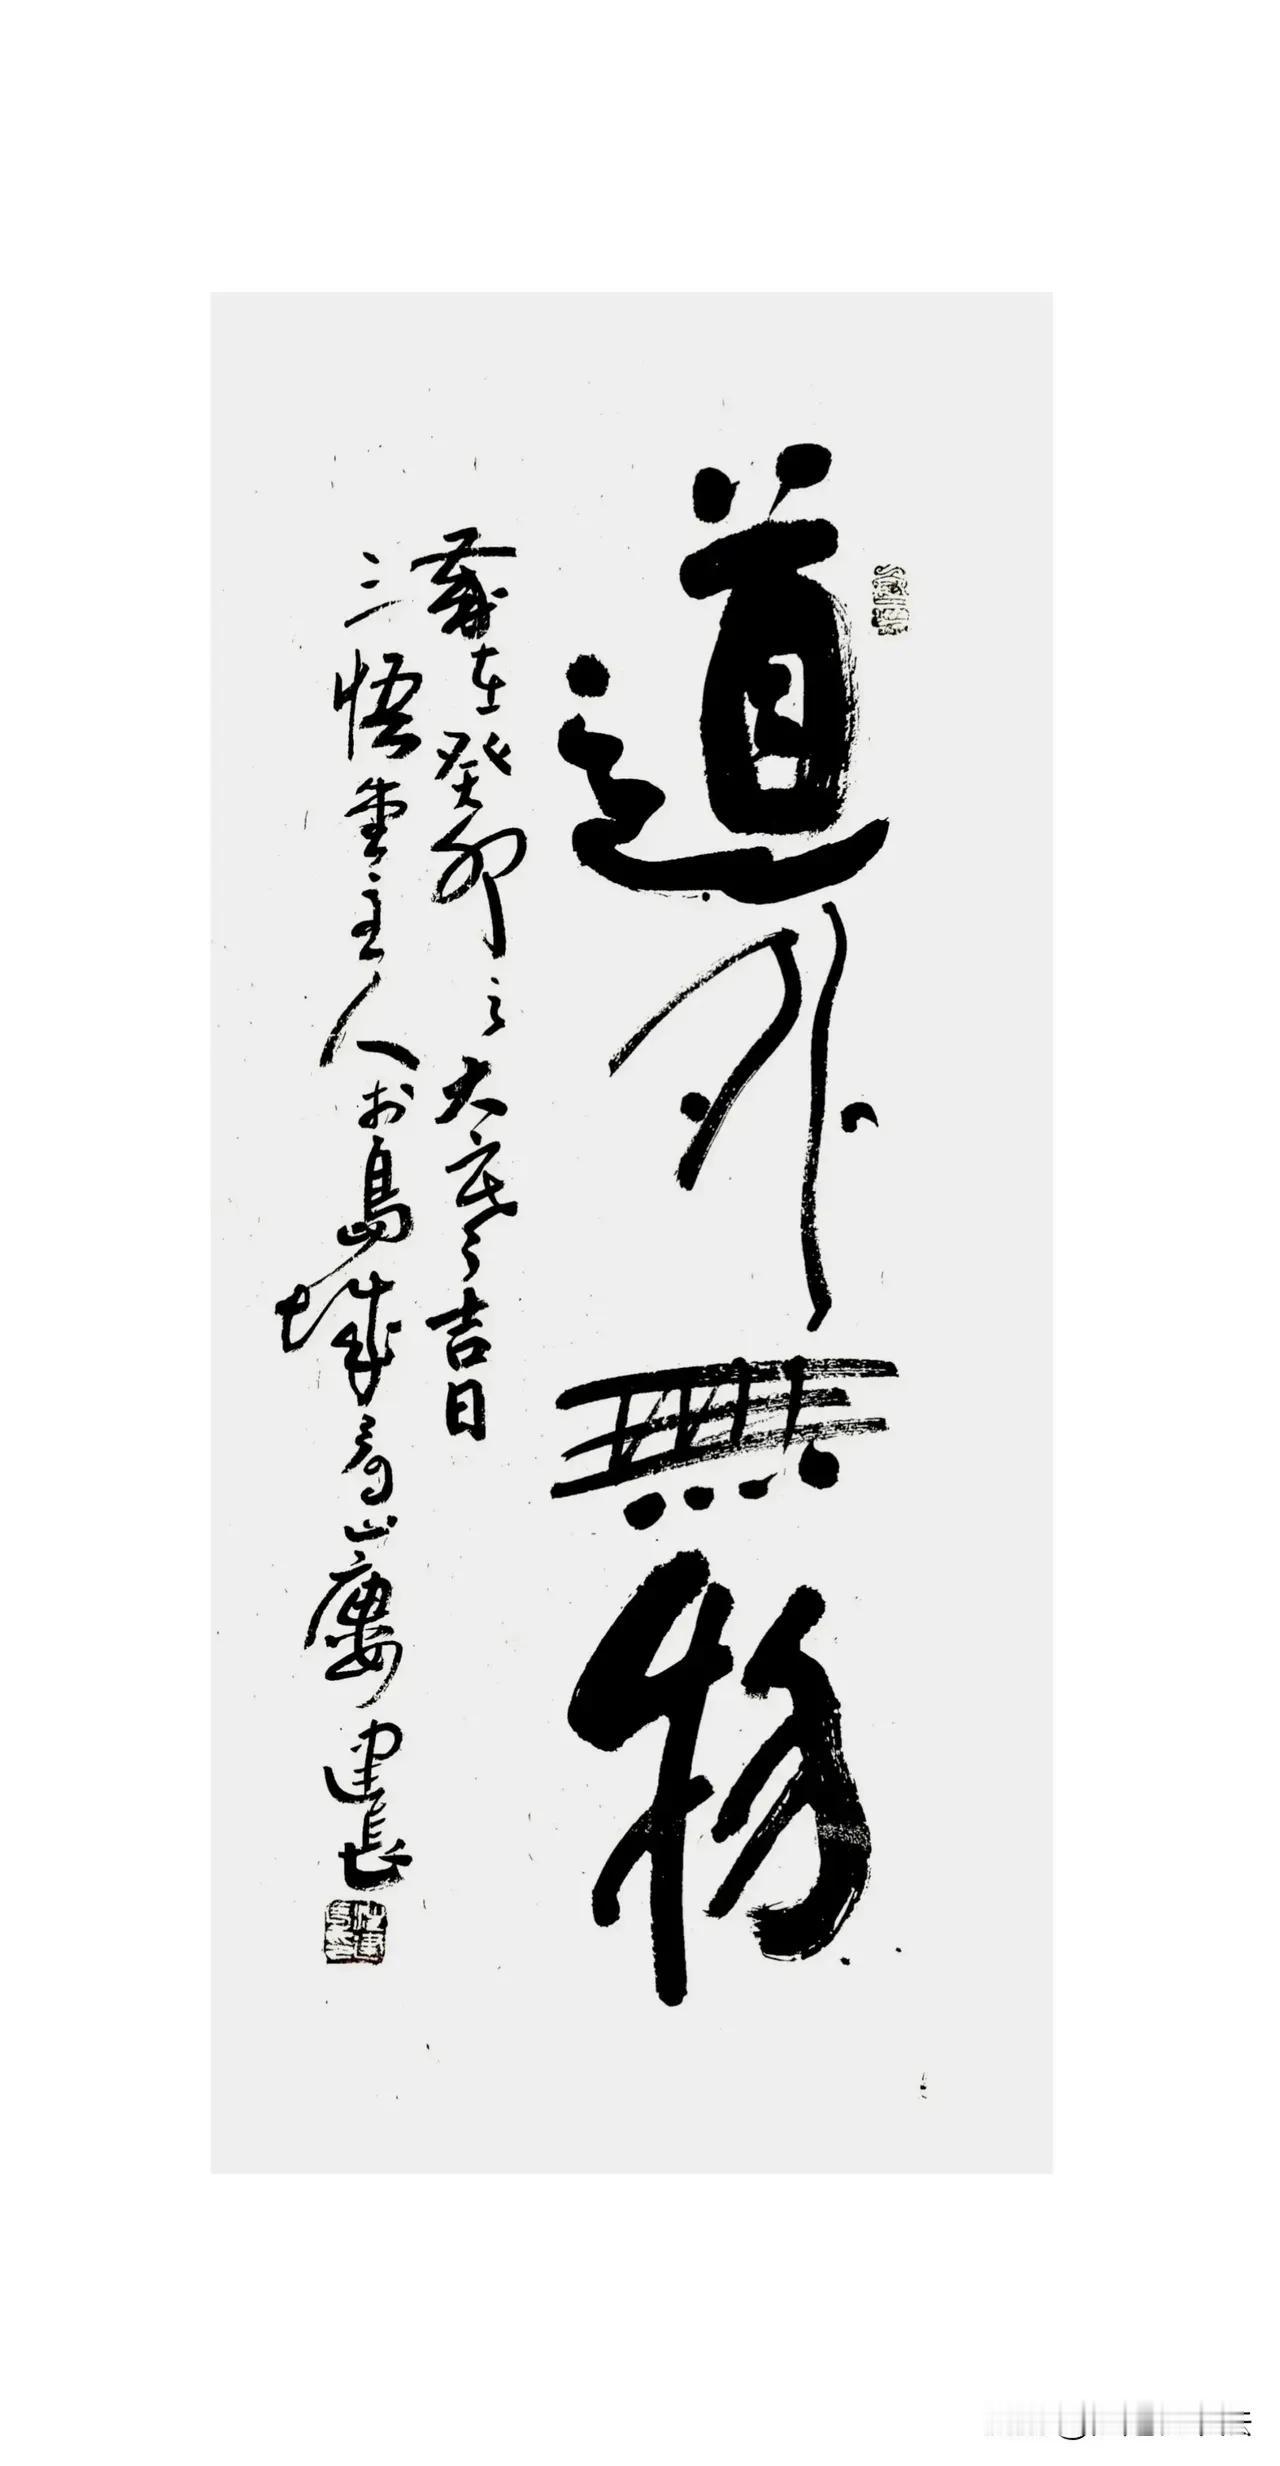 道外無物
歲在癸卯之大寒之吉日
三悟堂主人於島城高山 建長